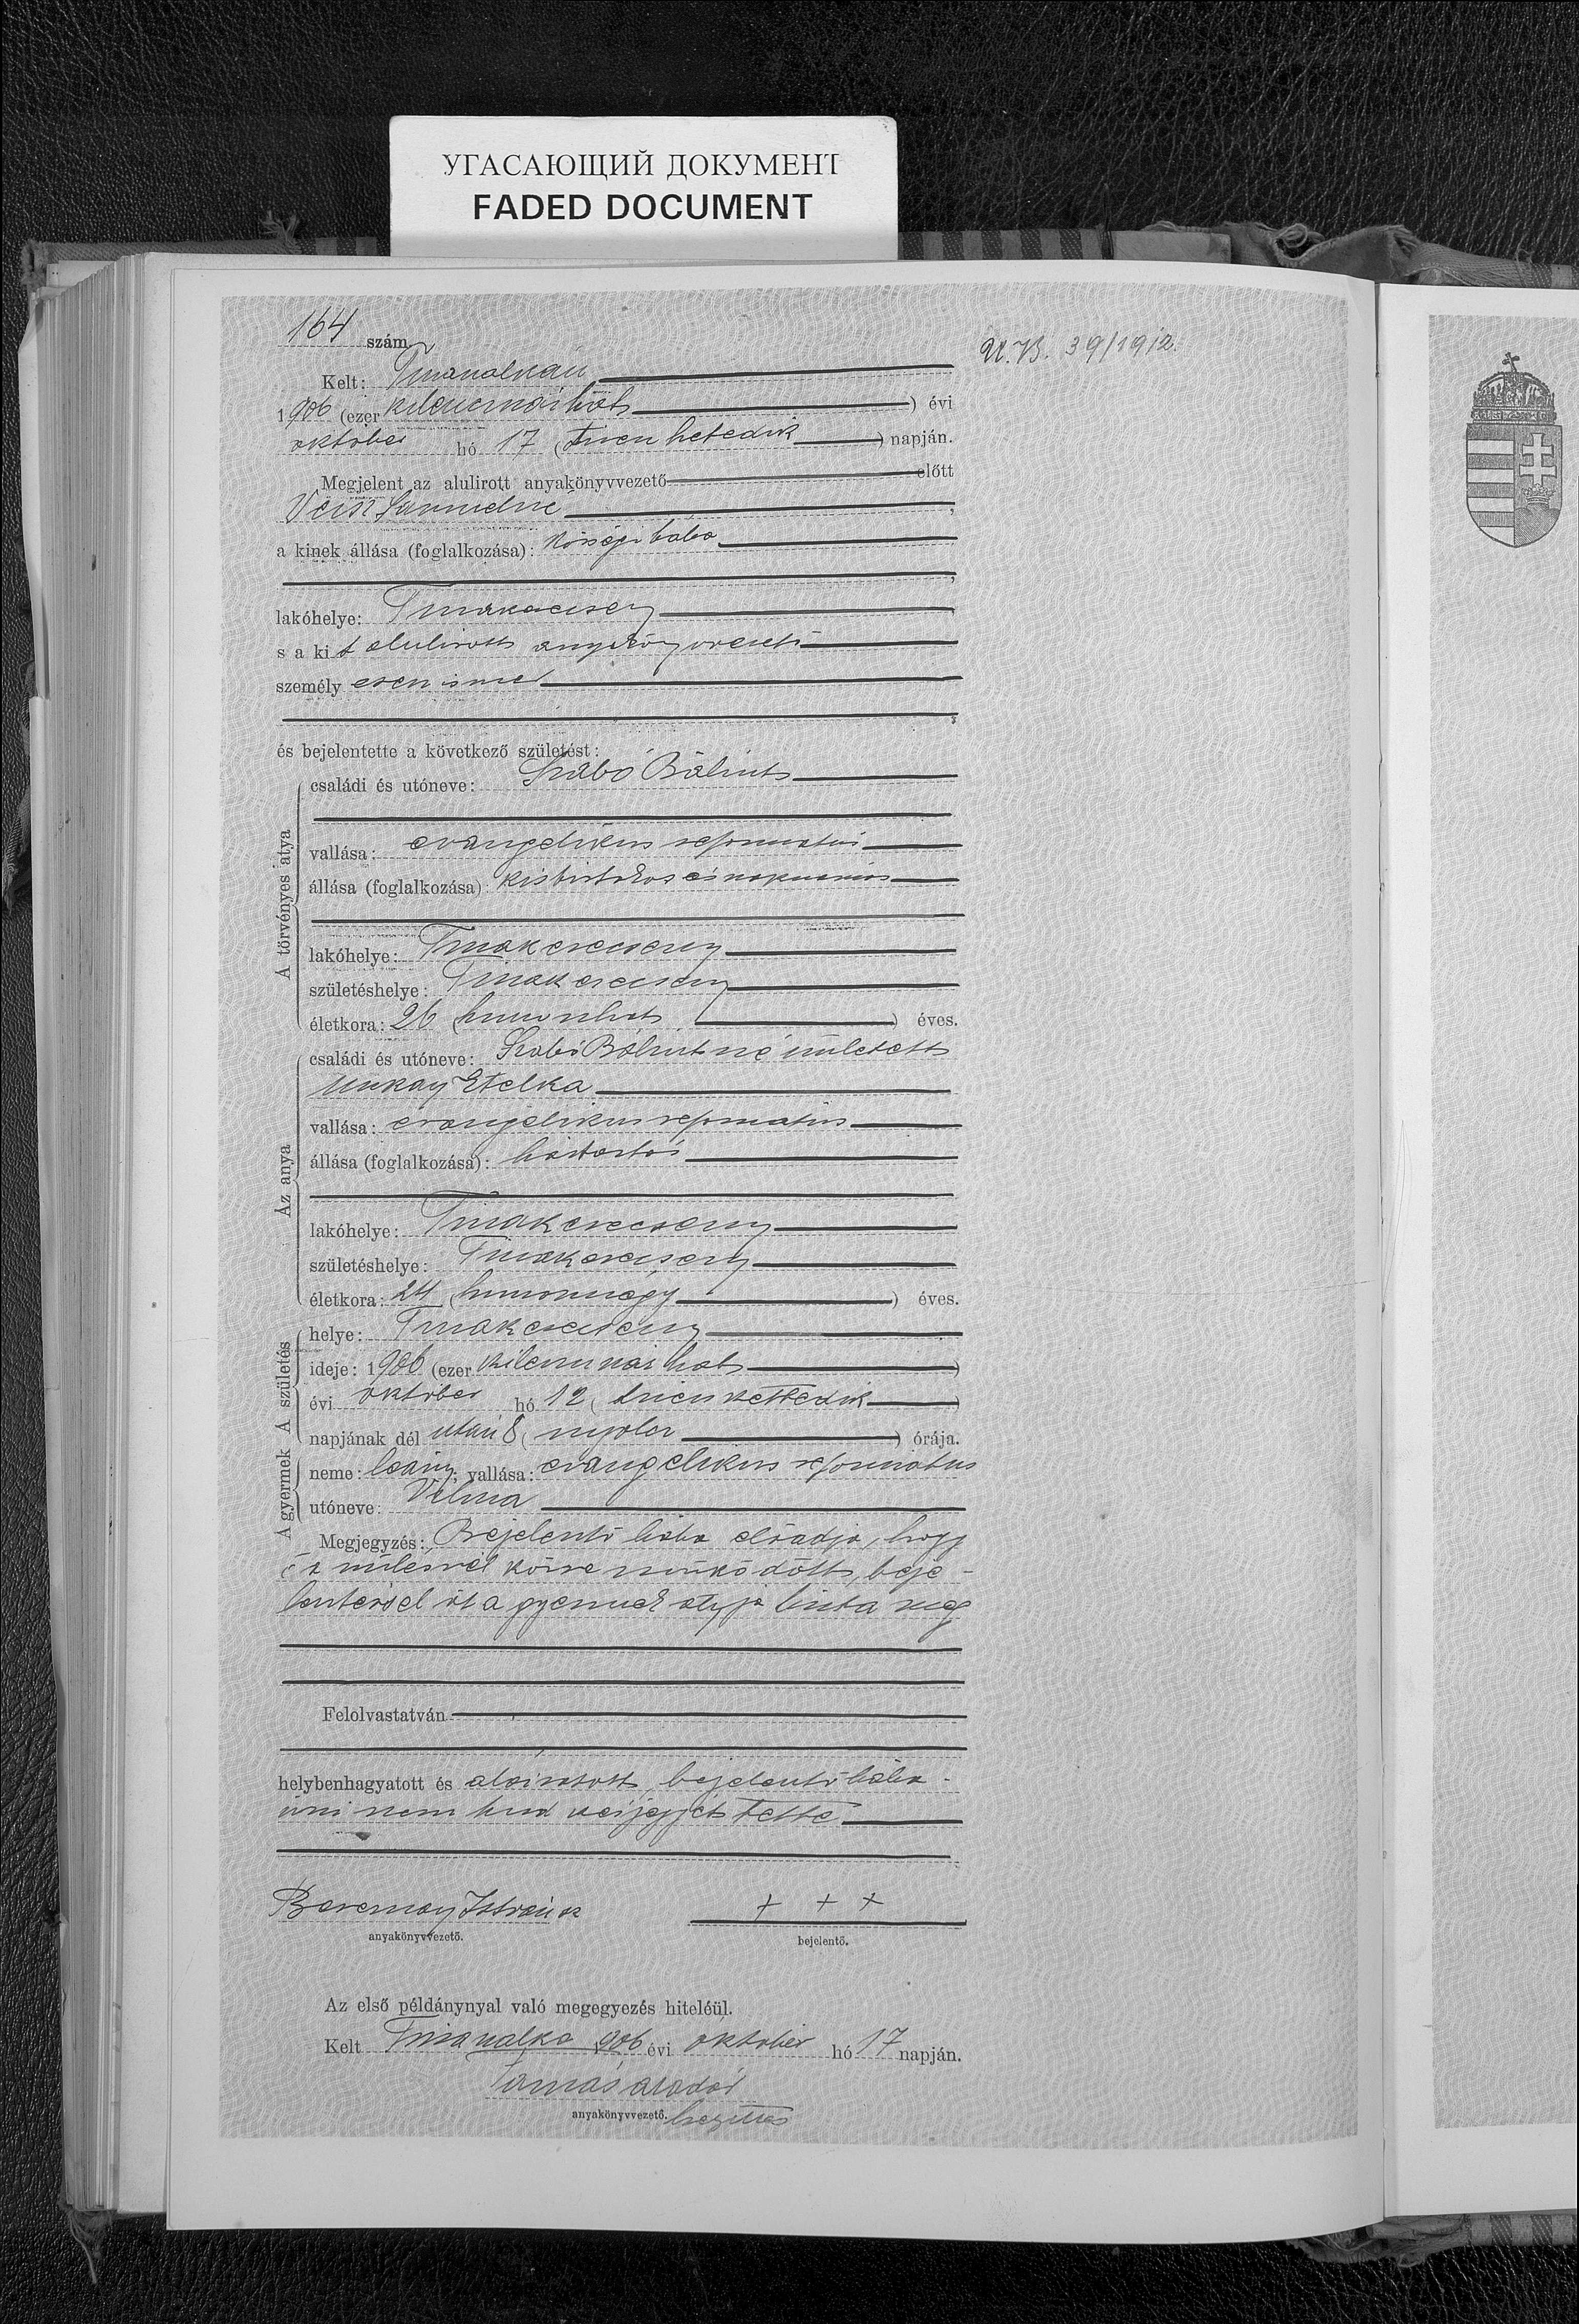 УГАСАЮЩИЙ ДОКУМЕНТ
FADED DOCUMENT
164 szám.
39/1912.
Kelt:
1906 (ezer kilencszázhat) évi
október hó 17 (tizenhetedik) napján.
Megjelent az alulirott anyakönyvvezető előtt
,
a kinek állása (foglalkozása): községi bába
,
lakóhelye: Tiszakerecseny
s a kit alulirott anyakönyvvezető
személyesen ismer
,
és bejelentette a következő születést:
A törvényes atya
családi és utóneve: Szabó Bálint
vallása: evangélikus református
állása (foglalkozása): kisbirtokos és napszámos
lakóhelye: Tiszakerecseny
születéshelye: Tiszakerecseny
életkora: 26 (huszonhat) éves.
Az anya
családi és utóneve: Szabó Bálintné született
Etelka
vallása: evangélikus református
állása (foglalkozása): háztartás
lakóhelye: Tiszakerecseny
születéshelye: Tiszakerecseny
életkora: 24 (huszonnégy) éves.
A születés
helye: Tiszakerecseny
ideje: 1906 (ezer kilencszázhat)
évi október hó 12 (tizenkettedik)
napjának dél után 8 (nyolc) órája.
A gyermek
neme: leány; vallása: evangélikus református
utóneve: Vilma
Megjegyzés: Bejelentő bába előadja, hogy
ő a szülésnél közre működött, beje-
lentéssel őt a gyermek atyja bízta meg
Felolvastatván
helybenhagyatott és aláiratott, bejelentő bába
írni nem tud kézjegyét tette
István
+ + +
anyakönyvvezető.
bejelentő.
Az első példánynyal való megegyezés hiteléül.
Kelt 1906 évi október hó 17 napján.
Tamás
anyakönyvvezető. helyettes